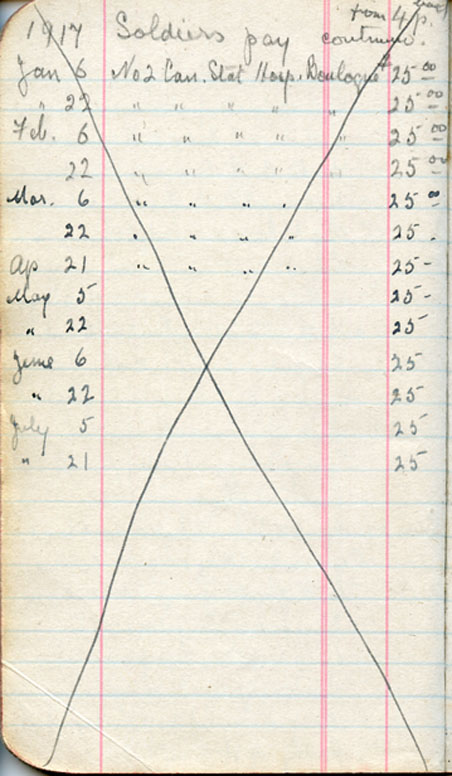 from 4 p.
1917 Soldiers pay continued.
Jan 6 No 2 Can. Stat Hosp. Boulogne $25 00
" 22 " " " " " 25 00
Feb. 6 " " " " " 25 00
22 " " " " " 25 00
Mar. 6 " " " " 25 00
22 " " " " 25 -
Ap 21 " " " " 25 -
May 5 25 -
" 22 25
June 6 25
" 22 25
July 5 25
" 21 25